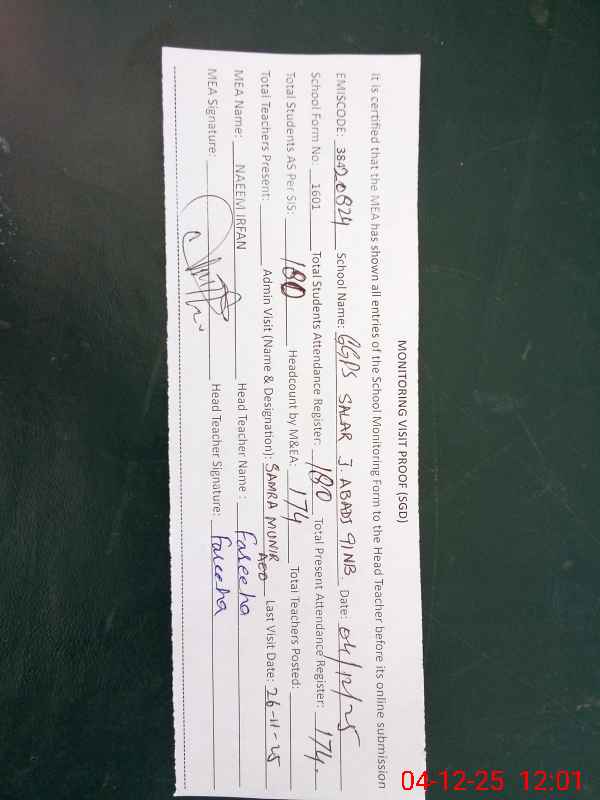 MONITORING VISIT PROOF (SGD)
it is certified that the MEA has shown all entries of the School Monitoring Form to the Head Teacher before its online submission
EMISCODE: 38420824 School Name: GGPS SALAR J. ABADS 91NB. Date: 04/12/25
School Form No. 1601 Total Students Attendance Register: 180 Total Present Attendance Register: 174.
Total Students AS Per SIS: 180 Headcount by M&EA: 174 Total Teachers Posted:
Total Teachers Present: Admin Visit (Name & Designation): SAMRA MUNIR AEO Last Visit Date: 26-11-25
MEA Name: NAEEM IRFAN Head Teacher Name : Fareeha
MEA Signature: Head Teacher Signature: Fareeha
04-12-25 12:01